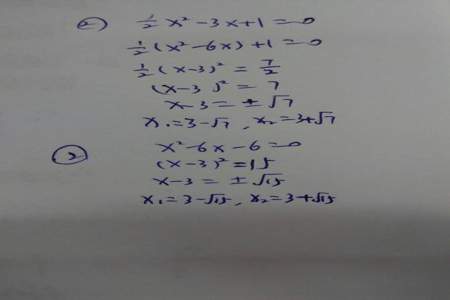 ② 1/2 x² - 3x + 1 = 0
1/2 (x² - 6x) + 1 = 0
1/2 (x - 3)² = 7/2
(x - 3)² = 7
x - 3 = ± √7
x₁ = 3 - √7 , x₂ = 3 + √7
③ x² - 6x - 6 = 0
(x - 3)² = 15
x - 3 = ± √15
x₁ = 3 - √15 , x₂ = 3 + √15